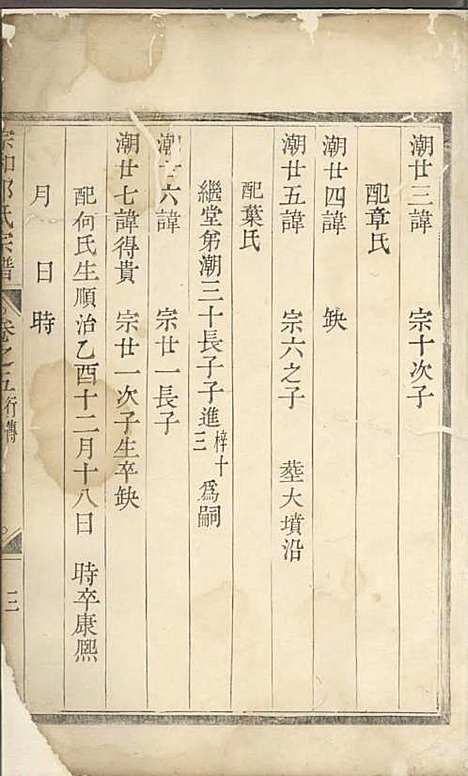 潮廿三諱　宗十次子
配章氏
潮廿四諱　缺
潮廿五諱　宗六之子　塟大墳沿
配葉氏
繼堂第潮三十長子子進梓十三為嗣
潮廿六諱　宗廿一長子
潮廿七諱得貴　宗廿一次子生卒缺
配何氏生順治乙酉十二月十八日　時卒康熙
月　日時
氏宗譜　卷之五　行傳　三